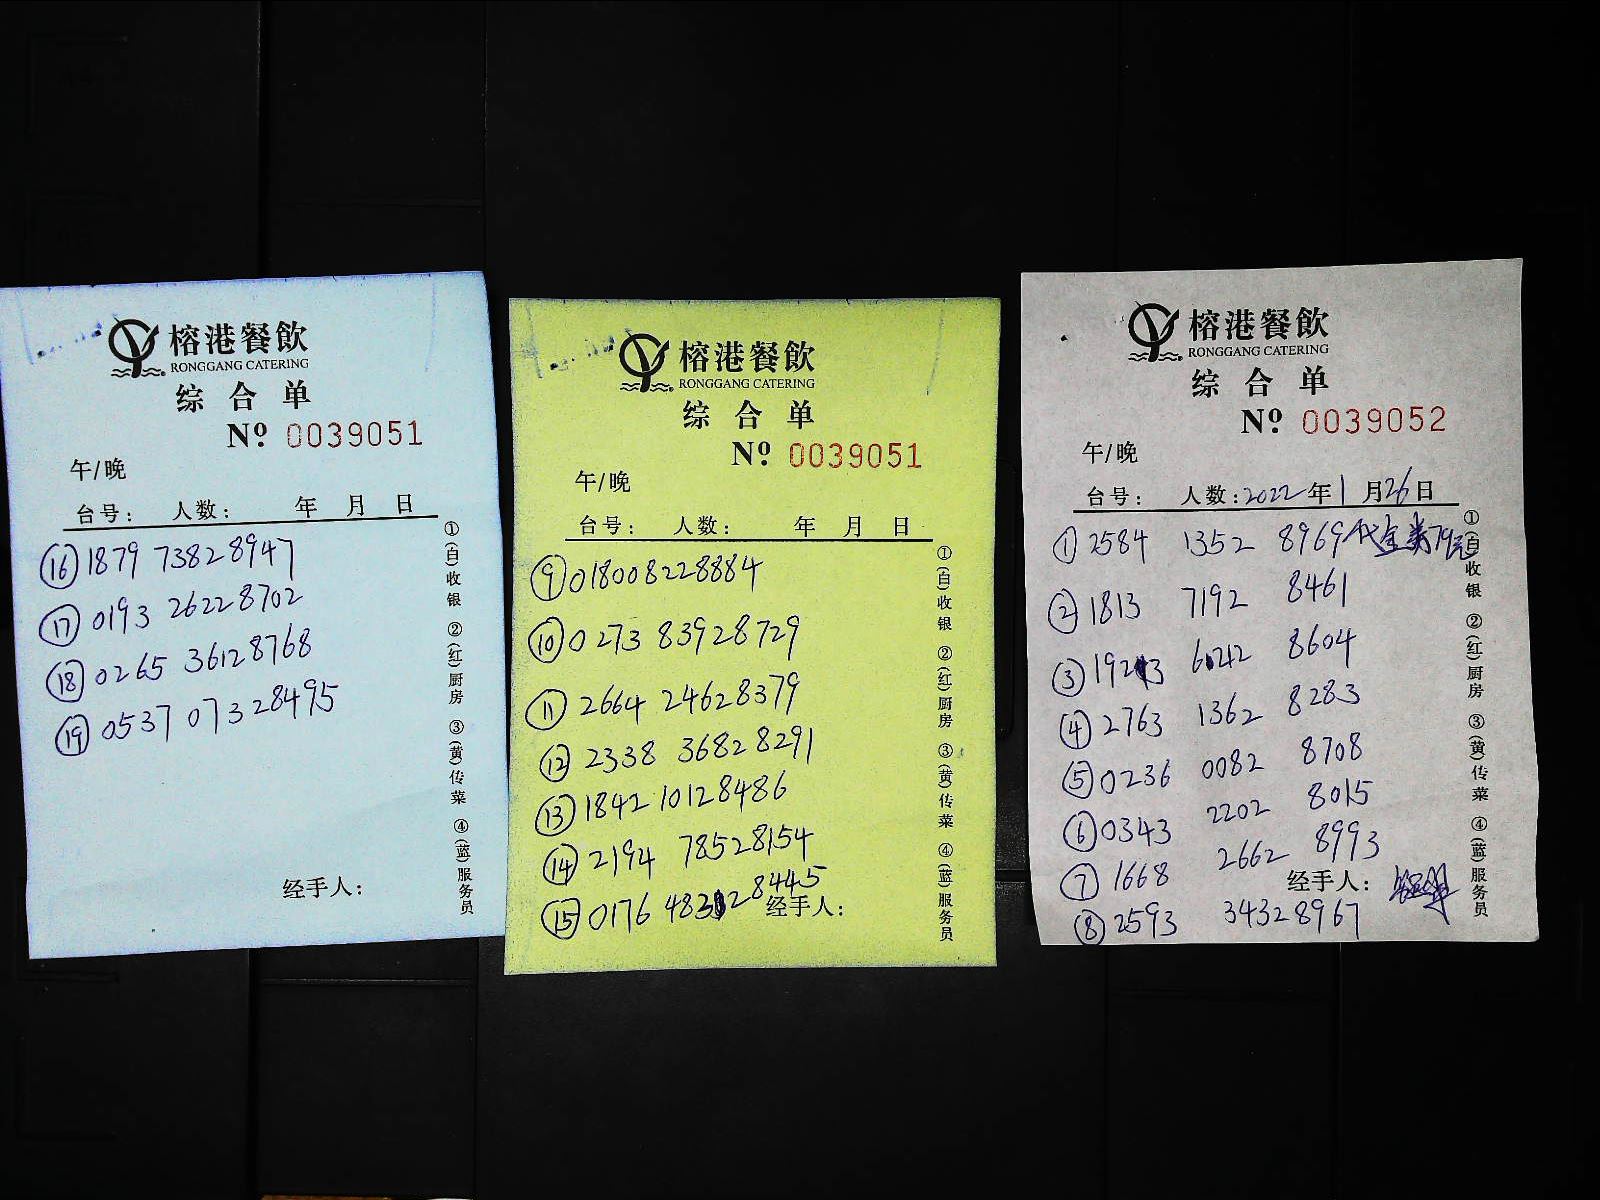 榕港餐飲
RONGGANG CATERING
综合单
Nº 0039051
午/晚
台号: 人数: 年 月 日
⑯ 1879 73828947
⑰ 0193 26228702
⑱ 0265 36128768
⑲ 0537 07328495
经手人:
①(白)收银 ②(红)厨房 ③(黄)传菜 ④(蓝)服务员
榕港餐飲
RONGGANG CATERING
综合单
Nº 0039051
午/晚
台号: 人数: 年 月 日
⑨ 018008228884
⑩ 0273 83928729
⑪ 2664 24628379
⑫ 2338 36828291
⑬ 1842 10128486
⑭ 2194 78528154
⑮ 0176 48328445
经手人:
①(白)收银 ②(红)厨房 ③(黄)传菜 ④(蓝)服务员
榕港餐飲
RONGGANG CATERING
综合单
Nº 0039052
午/晚
台号: 人数: 2022年1月26日
① 2584 1352 8969 代金券79元
② 1813 7192 8461
③ 1923 6242 8604
④ 2763 1362 8283
⑤ 0236 0082 8708
⑥ 0343 2202 8015
⑦ 1668 2662 8993
经手人:
⑧ 2593 34328967
①(白)收银 ②(红)厨房 ③(黄)传菜 ④(蓝)服务员